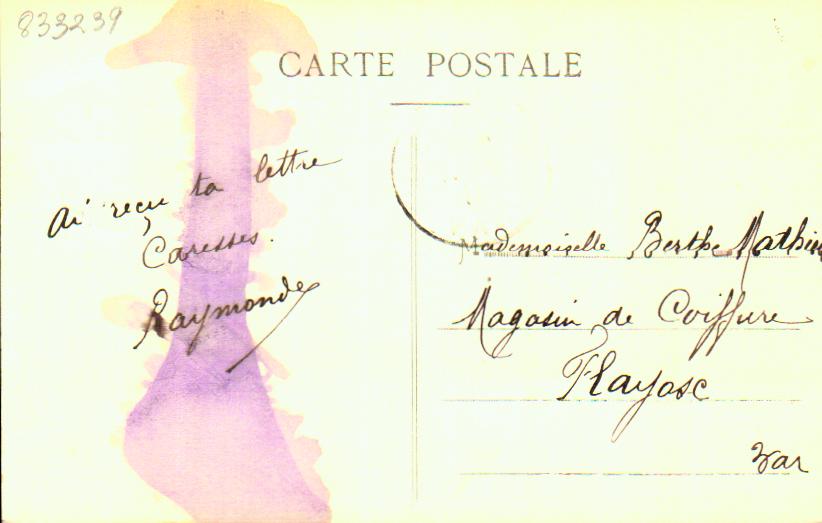 833239
CARTE POSTALE
Ai reçu ta lettre
Caresses.
Raymonde
Mademoiselle Berthe Mathieu
Magasin de Coiffure
Flayosc
Var